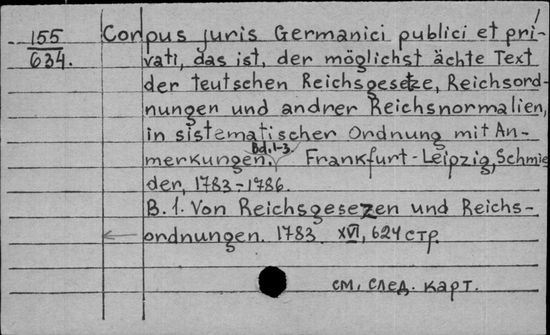 155
634.
Corpus juris Germanici publici et pri-
vati, das ist, der möglichst ächte Text
der teutschen Reichsgesetze, Reichsord-
nungen und andrer Reichsnormalien,
in sistematischer Ordnung mit An-
merkungen. Bd. 1-3. Frankfurt-Leipzig, Schmie
der, 1783-1786.
B. 1. Von Reichsgesezen und Reichs-
ordnungen. 1783. XVI, 624 стр.
см. след. карт.